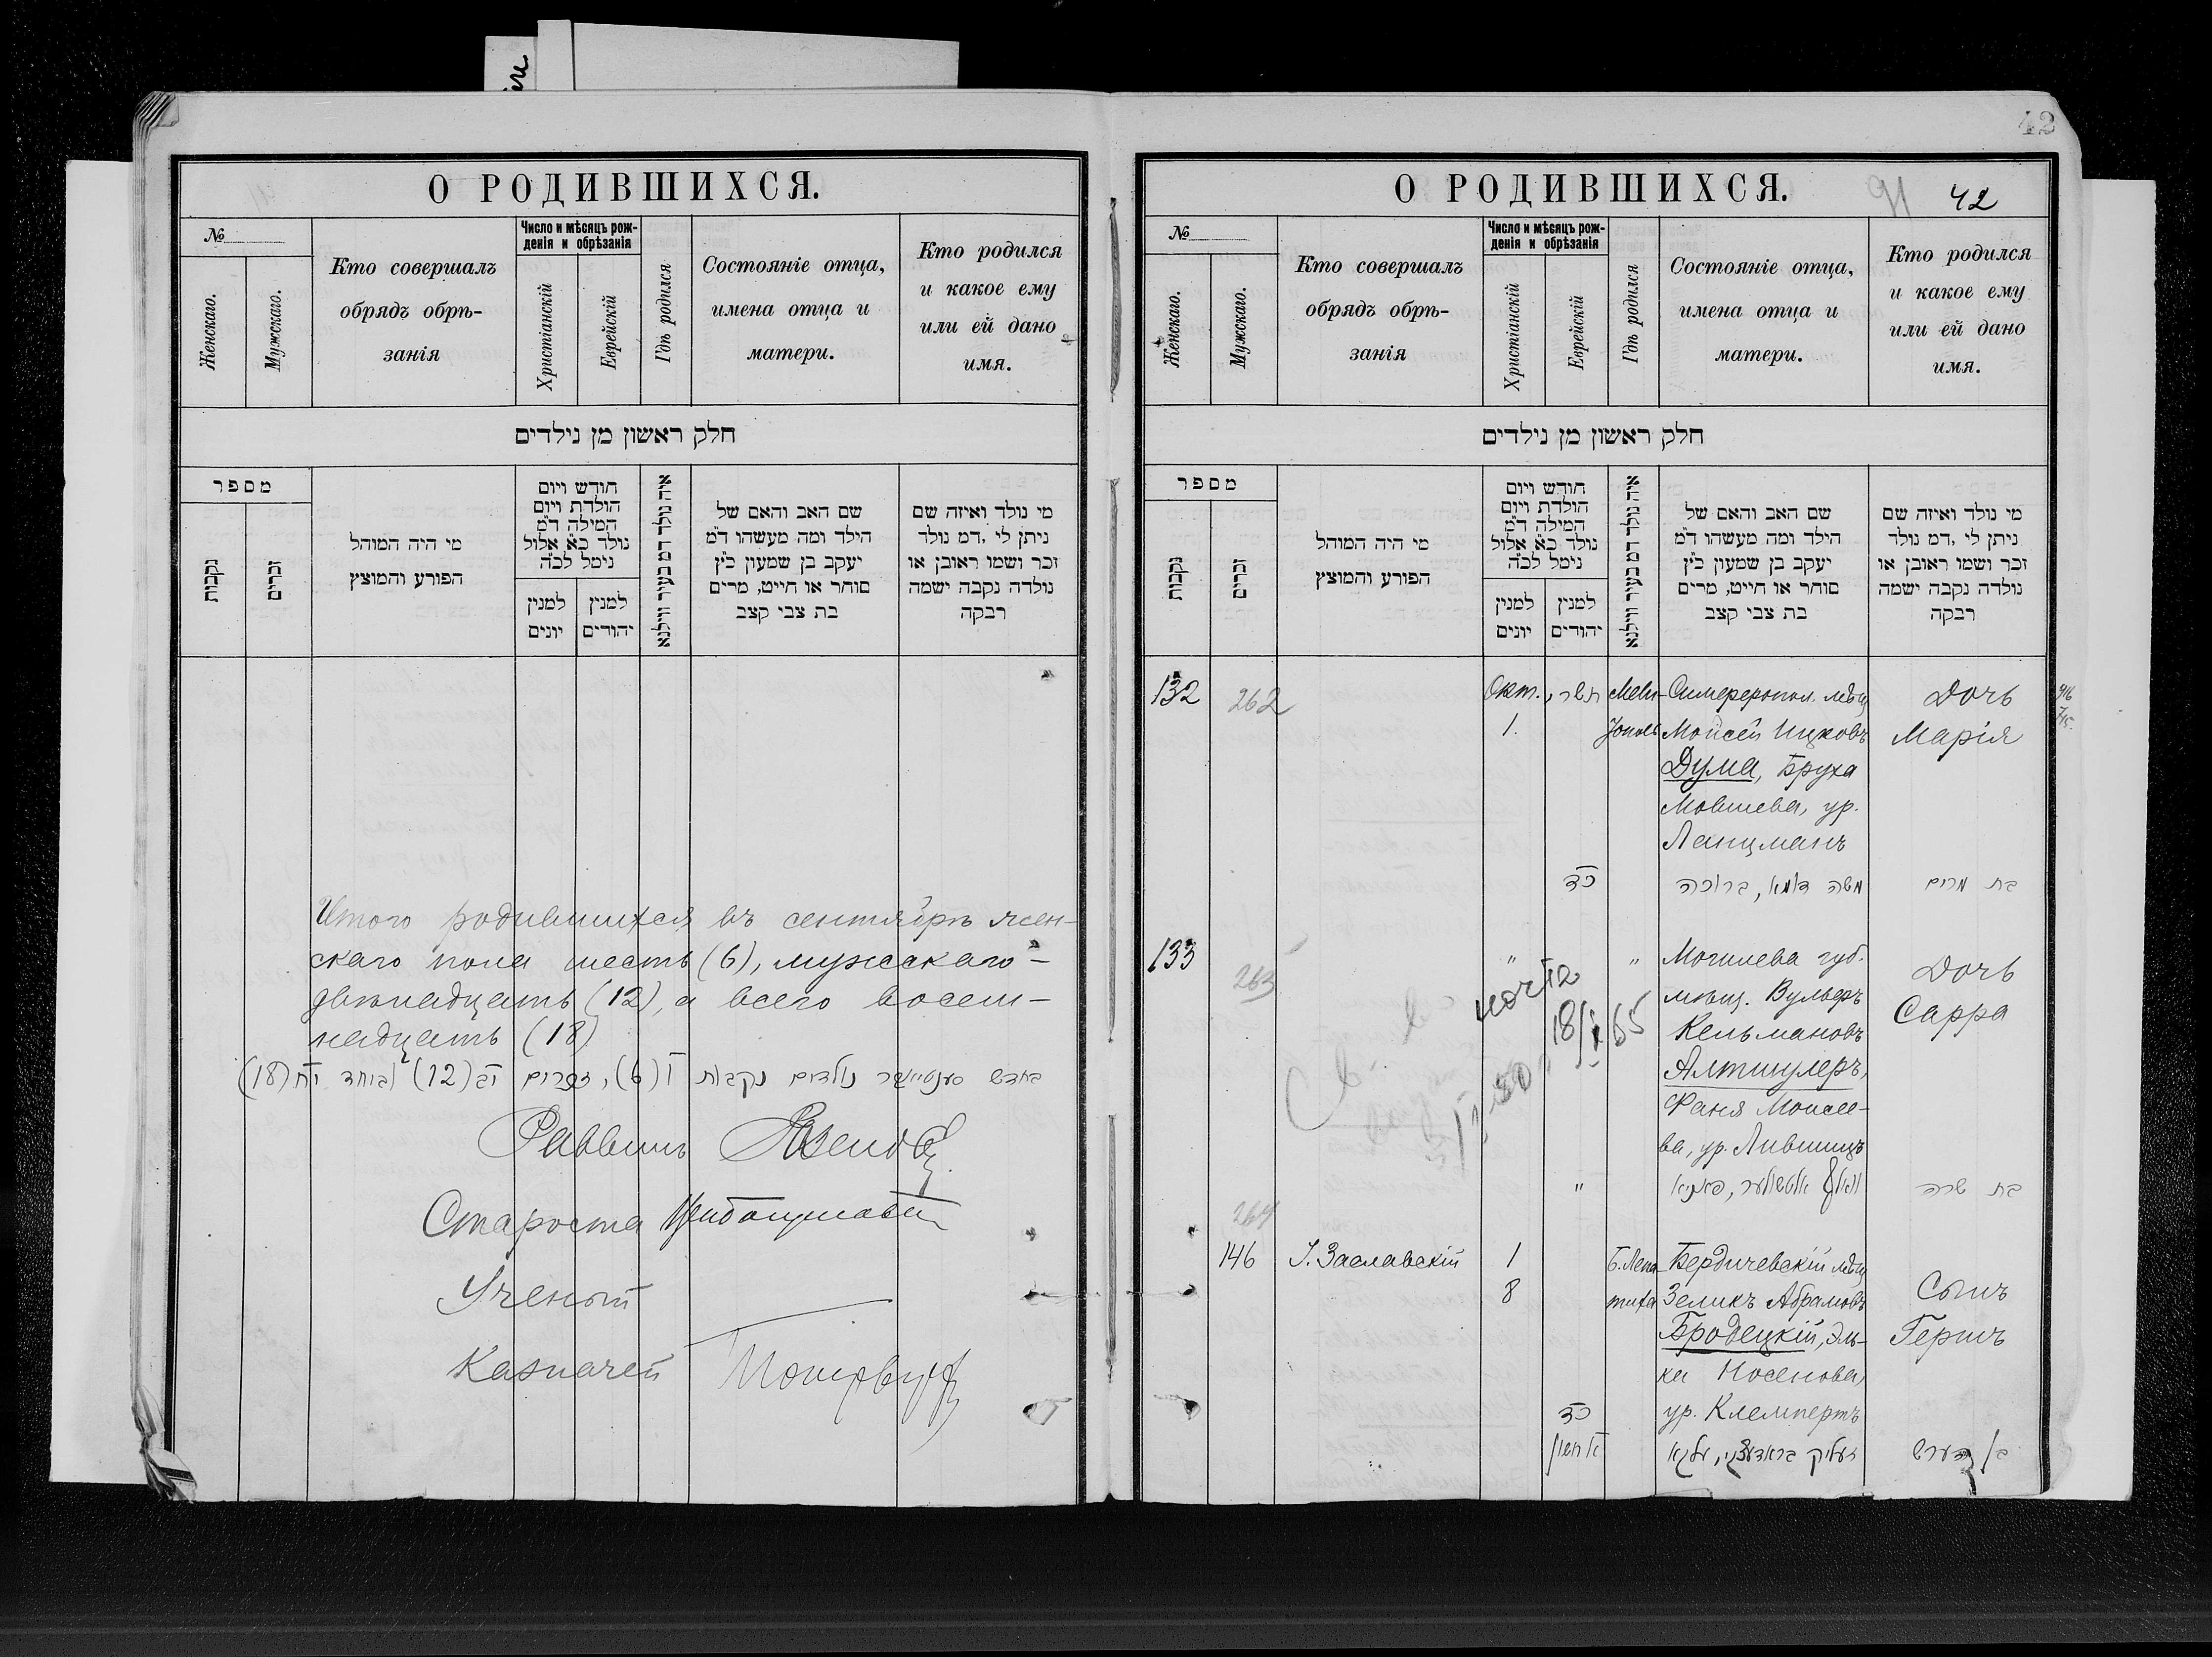 О РОДИВШИХСЯ.
№
Женскаго.
Мужскаго.
Кто совершалъ
обрядъ обрѣ-
занія
Число и мѣсяцъ рож-
денія и обрѣзанія
Христіанскій
Еврейскій
Гдѣ родился
Состояніе отца,
имена отца и
матери.
Кто родился
и какое ему
или ей дано
имя.
חלק ראשון מן נילדים
מספר
נקבות
זכרים
מי היה המוהל
הפורע והמוצץ
חודש ויום
הולדת ויום
המילה ד״מ
נולד כ״א אלול
נימל לכ״ה
למנין
יונים
למנין
יהודים
איה נולד דמ בעיר ווילנא
שם האב והאם של
הילד ומה מעשהו ד״מ
יעקב בן שמעון כ״ץ
סוחר או חייט, מרים
בת צבי קצב
מי נולד ואיזה שם
ניתן לי, דמ נולד
זכר ושמו ראובן או
נולדה נקבה ישמה
רבקה
Итого родившихся въ сентябрѣ жен-
скаго пола шесть (6), мужскаго -
двѣнадцать (12), а всего восем-
надцать (18)
בחדש סענטיאבר נולדים נקבות ו (6), זכרים יב (12) וביחד יח (18)
Раввинъ
Староста
Ученый
Казначей
42
О РОДИВШИХСЯ.
91
42
№
Женскаго.
Мужскаго.
Кто совершалъ
обрядъ обрѣ-
занія
Число и мѣсяцъ рож-
денія и обрѣзанія
Христіанскій
Еврейскій
Гдѣ родился
Состояніе отца,
имена отца и
матери.
Кто родился
и какое ему
или ей дано
имя.
חלק ראשון מן נילדים
מספר
נקבות
זכרים
מי היה המוהל
הפורע והמוצץ
חודש ויום
הולדת ויום
המילה ד״מ
נולד כ״א אלול
נימל לכ״ה
למנין
יונים
למנין
יהודים
איה נולד דמ בעיר ווילנא
שם האב והאם של
הילד ומה מעשהו ד״מ
יעקב בן שמעון כ״ץ
סוחר או חייט, מרים
בת צבי קצב
מי נולד ואיזה שם
ניתן לי, דמ נולד
זכר ושמו ראובן או
נולדה נקבה ישמה
רבקה
132 262 Окт. תשרי Мели- Симферопол. мѣщ Дочь
1. тополь Моисей Ицковъ Марія
Дума, Бруха
Мовшева, ур.
Ланцманъ
כד משה דומא, ברוכה בת מרים
133 263 " " Могилева губ. Дочь
мѣщ. Вульфъ Сарра
Кельмановъ
Алтшулеръ,
Фаня Моисее-
ва, ур. Лившицъ
" וואלף אלטשולער, פאניא בת שרה
18/I 65
264
146 І. Заславскій 1 Б. Лепа- Бердичевскій мѣщ Сынъ
8 тиха Зеликъ Абрамовъ Гершъ
Бродецкій, Эль-
ка Носенова,
ур. Клемпертъ
כד
א חשון זעליק בראדעצקי, עלקא בן הערש